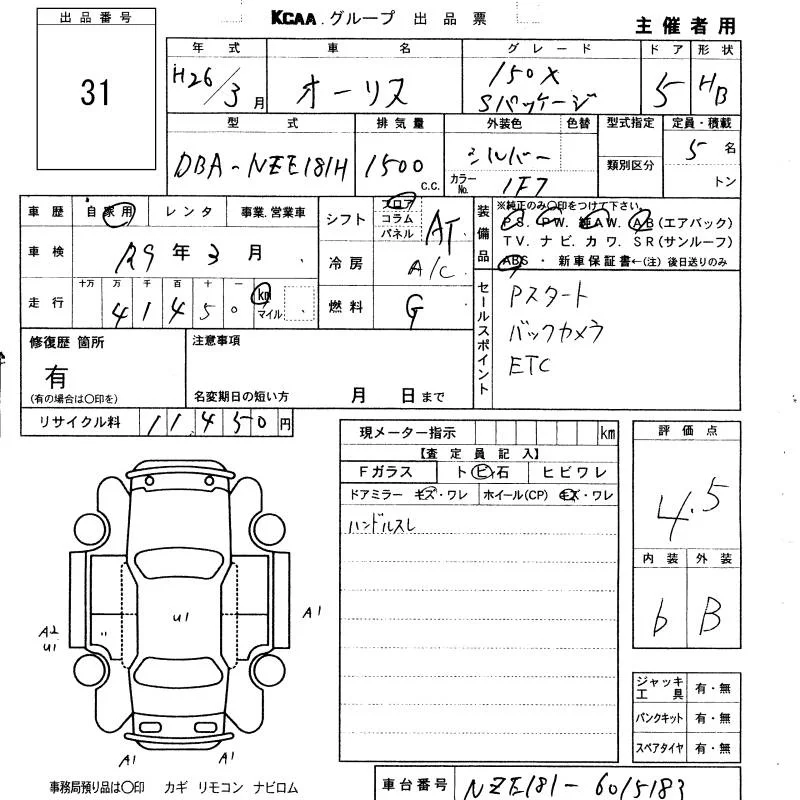 KCAA.グループ 出品票
主催者用
出品番号
31
年式 車名 グレード ドア 形状
H26/3月 オーリス 150X Sパッケージ 5 HB
型式 排気量 外装色 色替 型式指定 定員・積載
DBA-NZE181H 1500 c.c. シルバー
カラーNo. 1F7
類別区分
5 名
トン
車歴 自家用 レンタ 事業.営業車
車検 R9年3月
走行 十万 万 千 百 十 一 km マイル
4 1 4 5 0
シフト フロア コラム パネル AT
冷房 A/C
燃料 G
装備品
※純正のみ〇印をつけて下さい。
PS. PW. 純AW. AB(エアバック)
TV. ナビ. カワ. SR(サンルーフ)
ABS ・ 新車保証書←(注) 後日送りのみ
セールスポイント
Pスタート
バックカメラ
ETC
修復歴 箇所
有
(有の場合は〇印を)
注意事項
名変期日の短い方 月 日まで
リサイクル料 11450円
現メーター指示 km
【査定員記入】
Fガラス ト ビ 石 ヒビワレ
ドアミラー キズ・ワレ ホイール(CP) キズ・ワレ
ハンドルスレ
評価点
4.5
内装 外装
b B
U1
A1
A2
U1
"
A1 A1
ジャッキ工具 有・無
パンクキット 有・無
スペアタイヤ 有・無
事務局預り品は〇印 カギ リモコン ナビロム
車台番号 NZE181-6015183